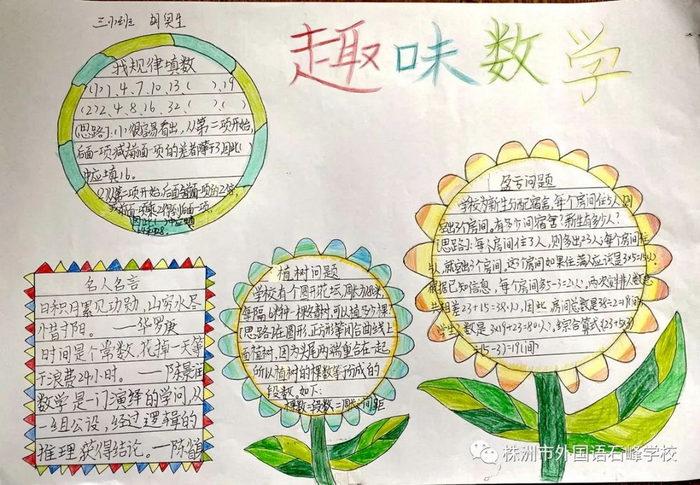 三
班
趣味数学
找规律填数
(1)1、4、7、10、13(  )、19
(2)2、4、8、16、32(  )、(  )
[思路](1)很容易看出,从第二项开始,
后面一项减前面一项的差都等于3因此(
中应填16。
(2)第二项开始,后面
名人名言
日积月累见功勋,山穷水尽
惜寸阴。 ——华罗庚
时间是个常数,花掉一天等
于浪费24小时。 ——陈景润
数学是一门演绎的学问,从
一组公设,经过逻辑的
推理获得结论。——陈省
植树问题
学校有个圆形花坛,周长
每隔6米种一棵
可以植多少棵?
[思路]在圆形,正方形等闭合曲线上
面植树,因为头尾两端重合在一起
所以植树的棵数等于所成的
段数。如下:
棵数=段数=周长÷间距
盈亏问题
学校为新生分配宿舍,每个房间住
空出3个房间,
多少间宿舍?新生有多少人?
[思路]:每个房间住3人,则多出23人,每个房间住
人,就空出3个房间,这3个房间如果住满人应该是3×5=15
根据已知信息,每个房间多5-3=2人,两次
人数总
共相差23+15=38人,因此,房间总数是38÷2=19
学生
数是3×19+23=80人,综合算式:(23+5×3)
(5-3)=19(间)
株洲市外国语石峰学校